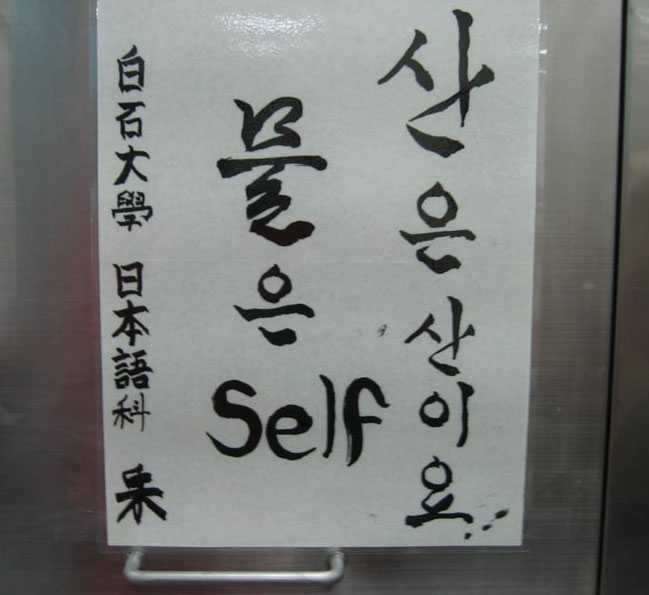 산은 산이요..
물은 Self
白石大學 日本語科